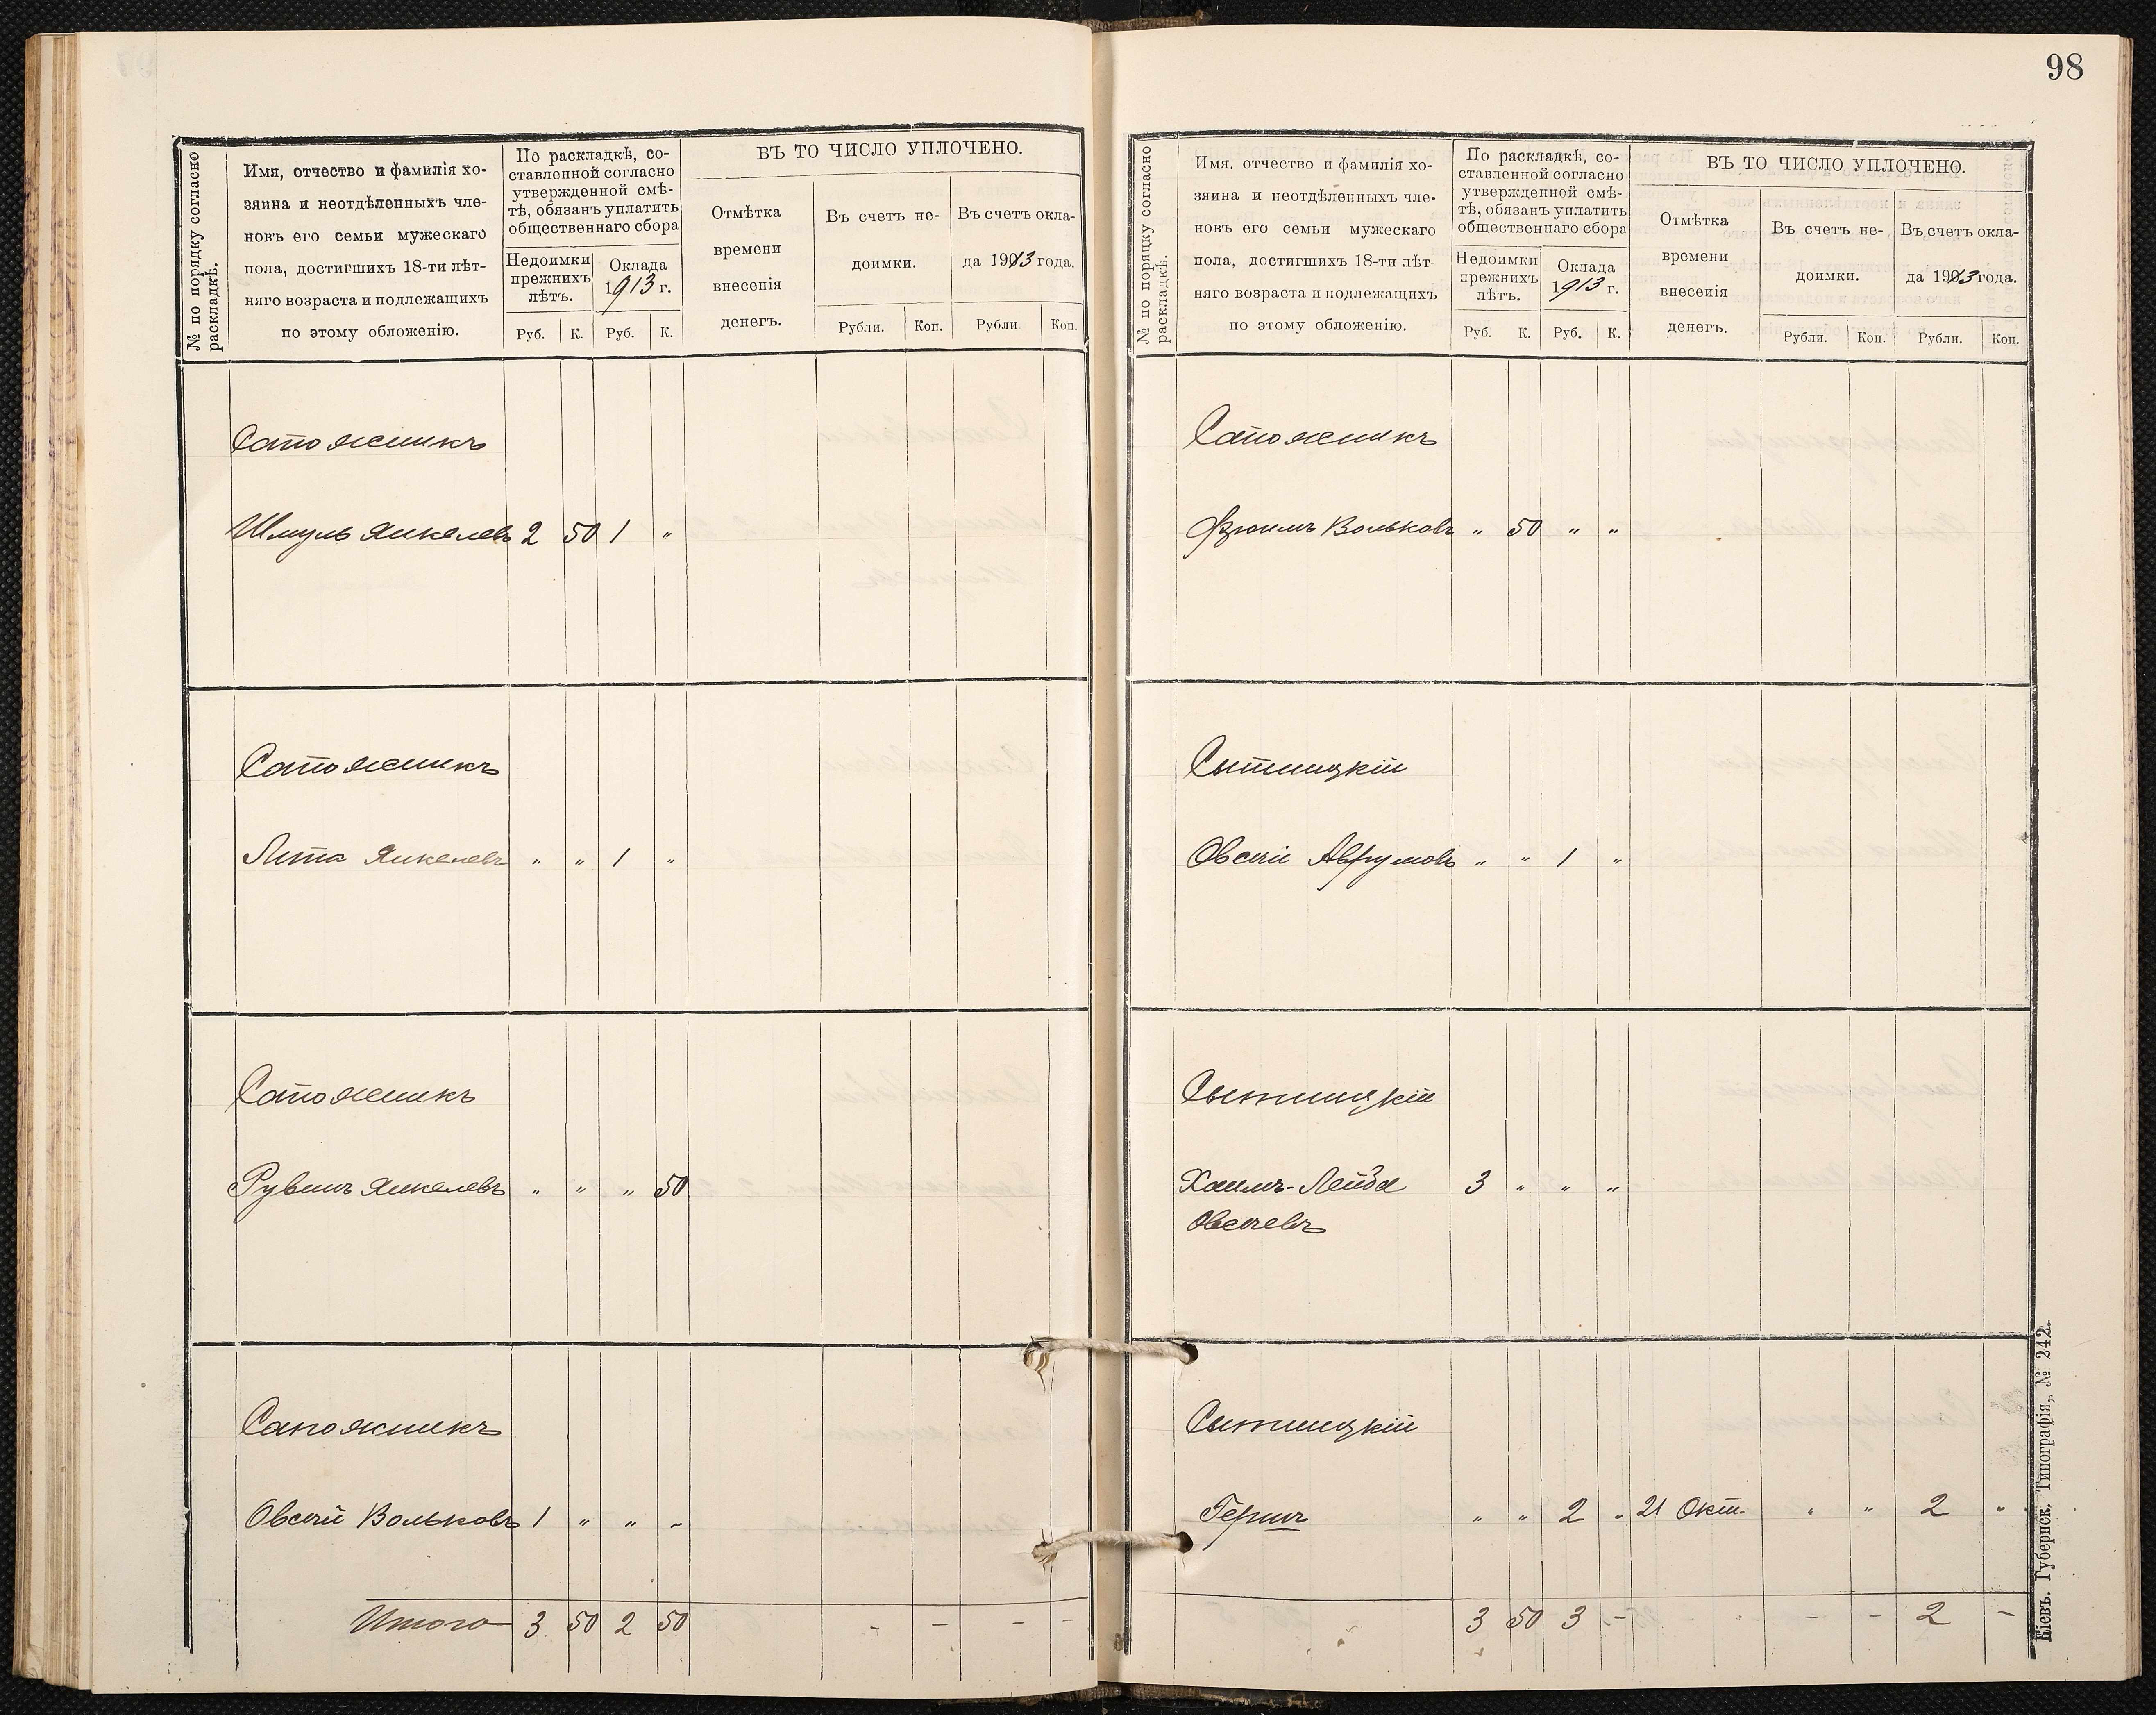 98
№ по порядку согласно раскладкѣ.
Имя, отчество и фамилія хо-
зяина и неотдѣленныхъ чле-
новъ его семьи мужескаго
пола, достигшихъ 18-ти лѣт-
няго возраста и подлежащихъ
по этому обложенію.
По раскладкѣ, со-
ставленной согласно
утвержденной смѣ-
тѣ, обязанъ уплатить
общественнаго сбора
Недоимки
прежнихъ
лѣтъ.
Оклада
1913 г.
Руб. К. Руб. К.
ВЪ ТО ЧИСЛО УПЛОЧЕНО.
Отмѣтка
времени
внесенія
денегъ.
Въ счетъ не-
доимки.
Въ счетъ окла-
да 1913 года.
Рубли. Коп. Рубли Коп.
Сапожникъ
Шмуль Янкелевъ 2 50 1 "
Сапожникъ
Лита Янкелевъ " " 1 "
Сапожникъ
Рувинъ Янкелевъ " " " 50
Сапожникъ
Овсей Вольковъ 1 " " "
Итого 3 50 2 50 - - - -
№ по порядку согласно раскладкѣ.
Имя, отчество и фамилія хо-
зяина и неотдѣленныхъ чле-
новъ его семьи мужескаго
пола, достигшихъ 18-ти лѣт-
няго возраста и подлежащихъ
по этому обложенію.
По раскладкѣ, со-
ставленной согласно
утвержденной смѣ-
тѣ, обязанъ уплатить
общественнаго сбора
Недоимки
прежнихъ
лѣтъ.
Оклада
1913 г.
Руб. К. Руб. К.
ВЪ ТО ЧИСЛО УПЛОЧЕНО.
Отмѣтка
времени
внесенія
денегъ.
Въ счетъ не-
доимки.
Въ счетъ окла-
да 1913 года.
Рубли. Коп. Рубли. Коп.
Сапожникъ
Фроимъ Вольковъ " 50 " "
Сытницкій
Овсей Аврумовъ " " 1 "
Сытницкій
Хаимъ-Лейба 3 " " "
Овсеевъ
Сытницкій
Гершъ " " 2 " 21 Окт. " " 2 "
3 50 3 - - - 2 -
Кіевъ. Губернск. Типографія,, № 242.